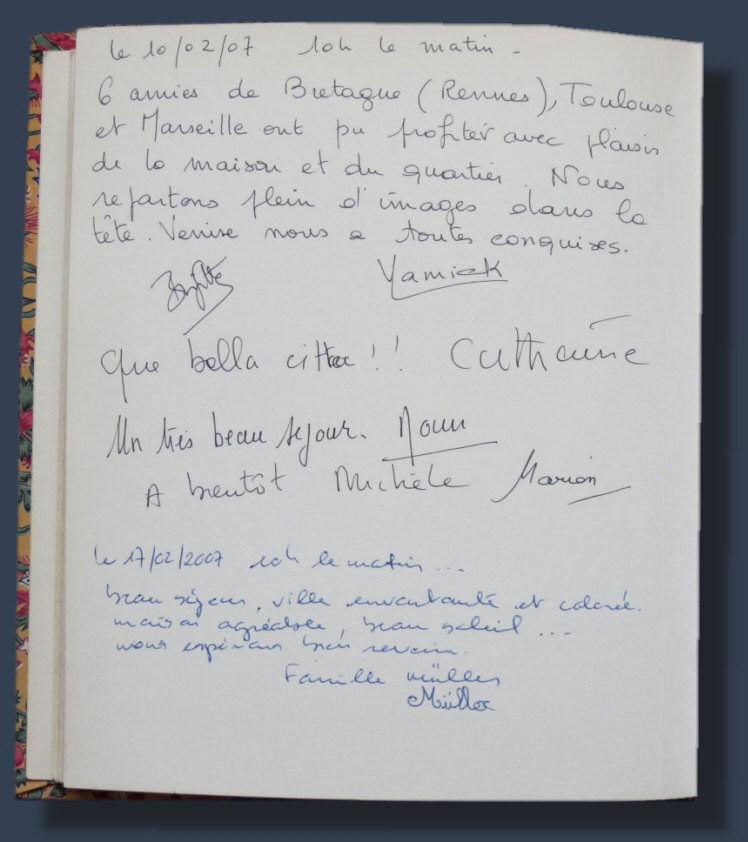 le 10/02/07 10h le matin -
6 amies de Bretagne (Rennes), Toulouse
et Marseille ont pu profiter avec plaisir
de la maison et du quartier. Nous
repartons plein d'images dans la
tête. Venise nous a toutes conquises.
Brigitte Yannick
Que bella citta !! Catherine
Un très beau séjour. Noun
A bientôt Michèle Marion
le 17/02/2007 10h le matin...
beau séjour, ville envoutante et colorée.
maison agréable, beau soleil...
nous espérons bien revenir.
Famille Müller
Müller